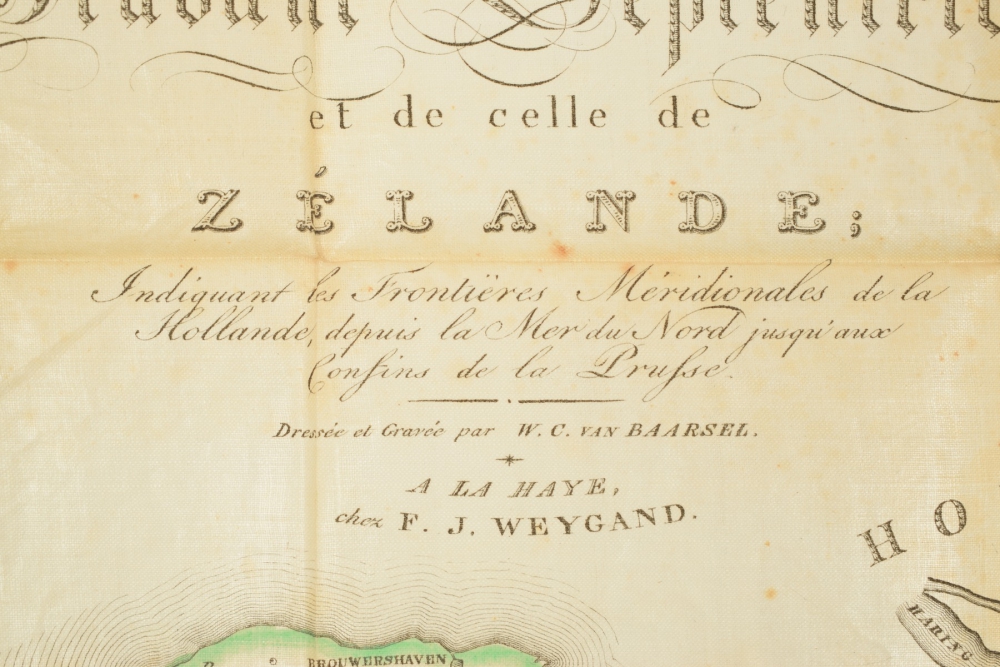 Brabant Septentrio
et de celle de
ZÉLANDE;
Indiquant les Frontiëres Méridionales de la
Hollande, depuis la Mer du Nord jusqu'aux
Confins de la Prusse.
Dressée et Gravée par W. C. VAN BAARSEL.
A LA HAYE,
chez F. J. WEYGAND.
HO
HARING
BROUWERSHAVEN